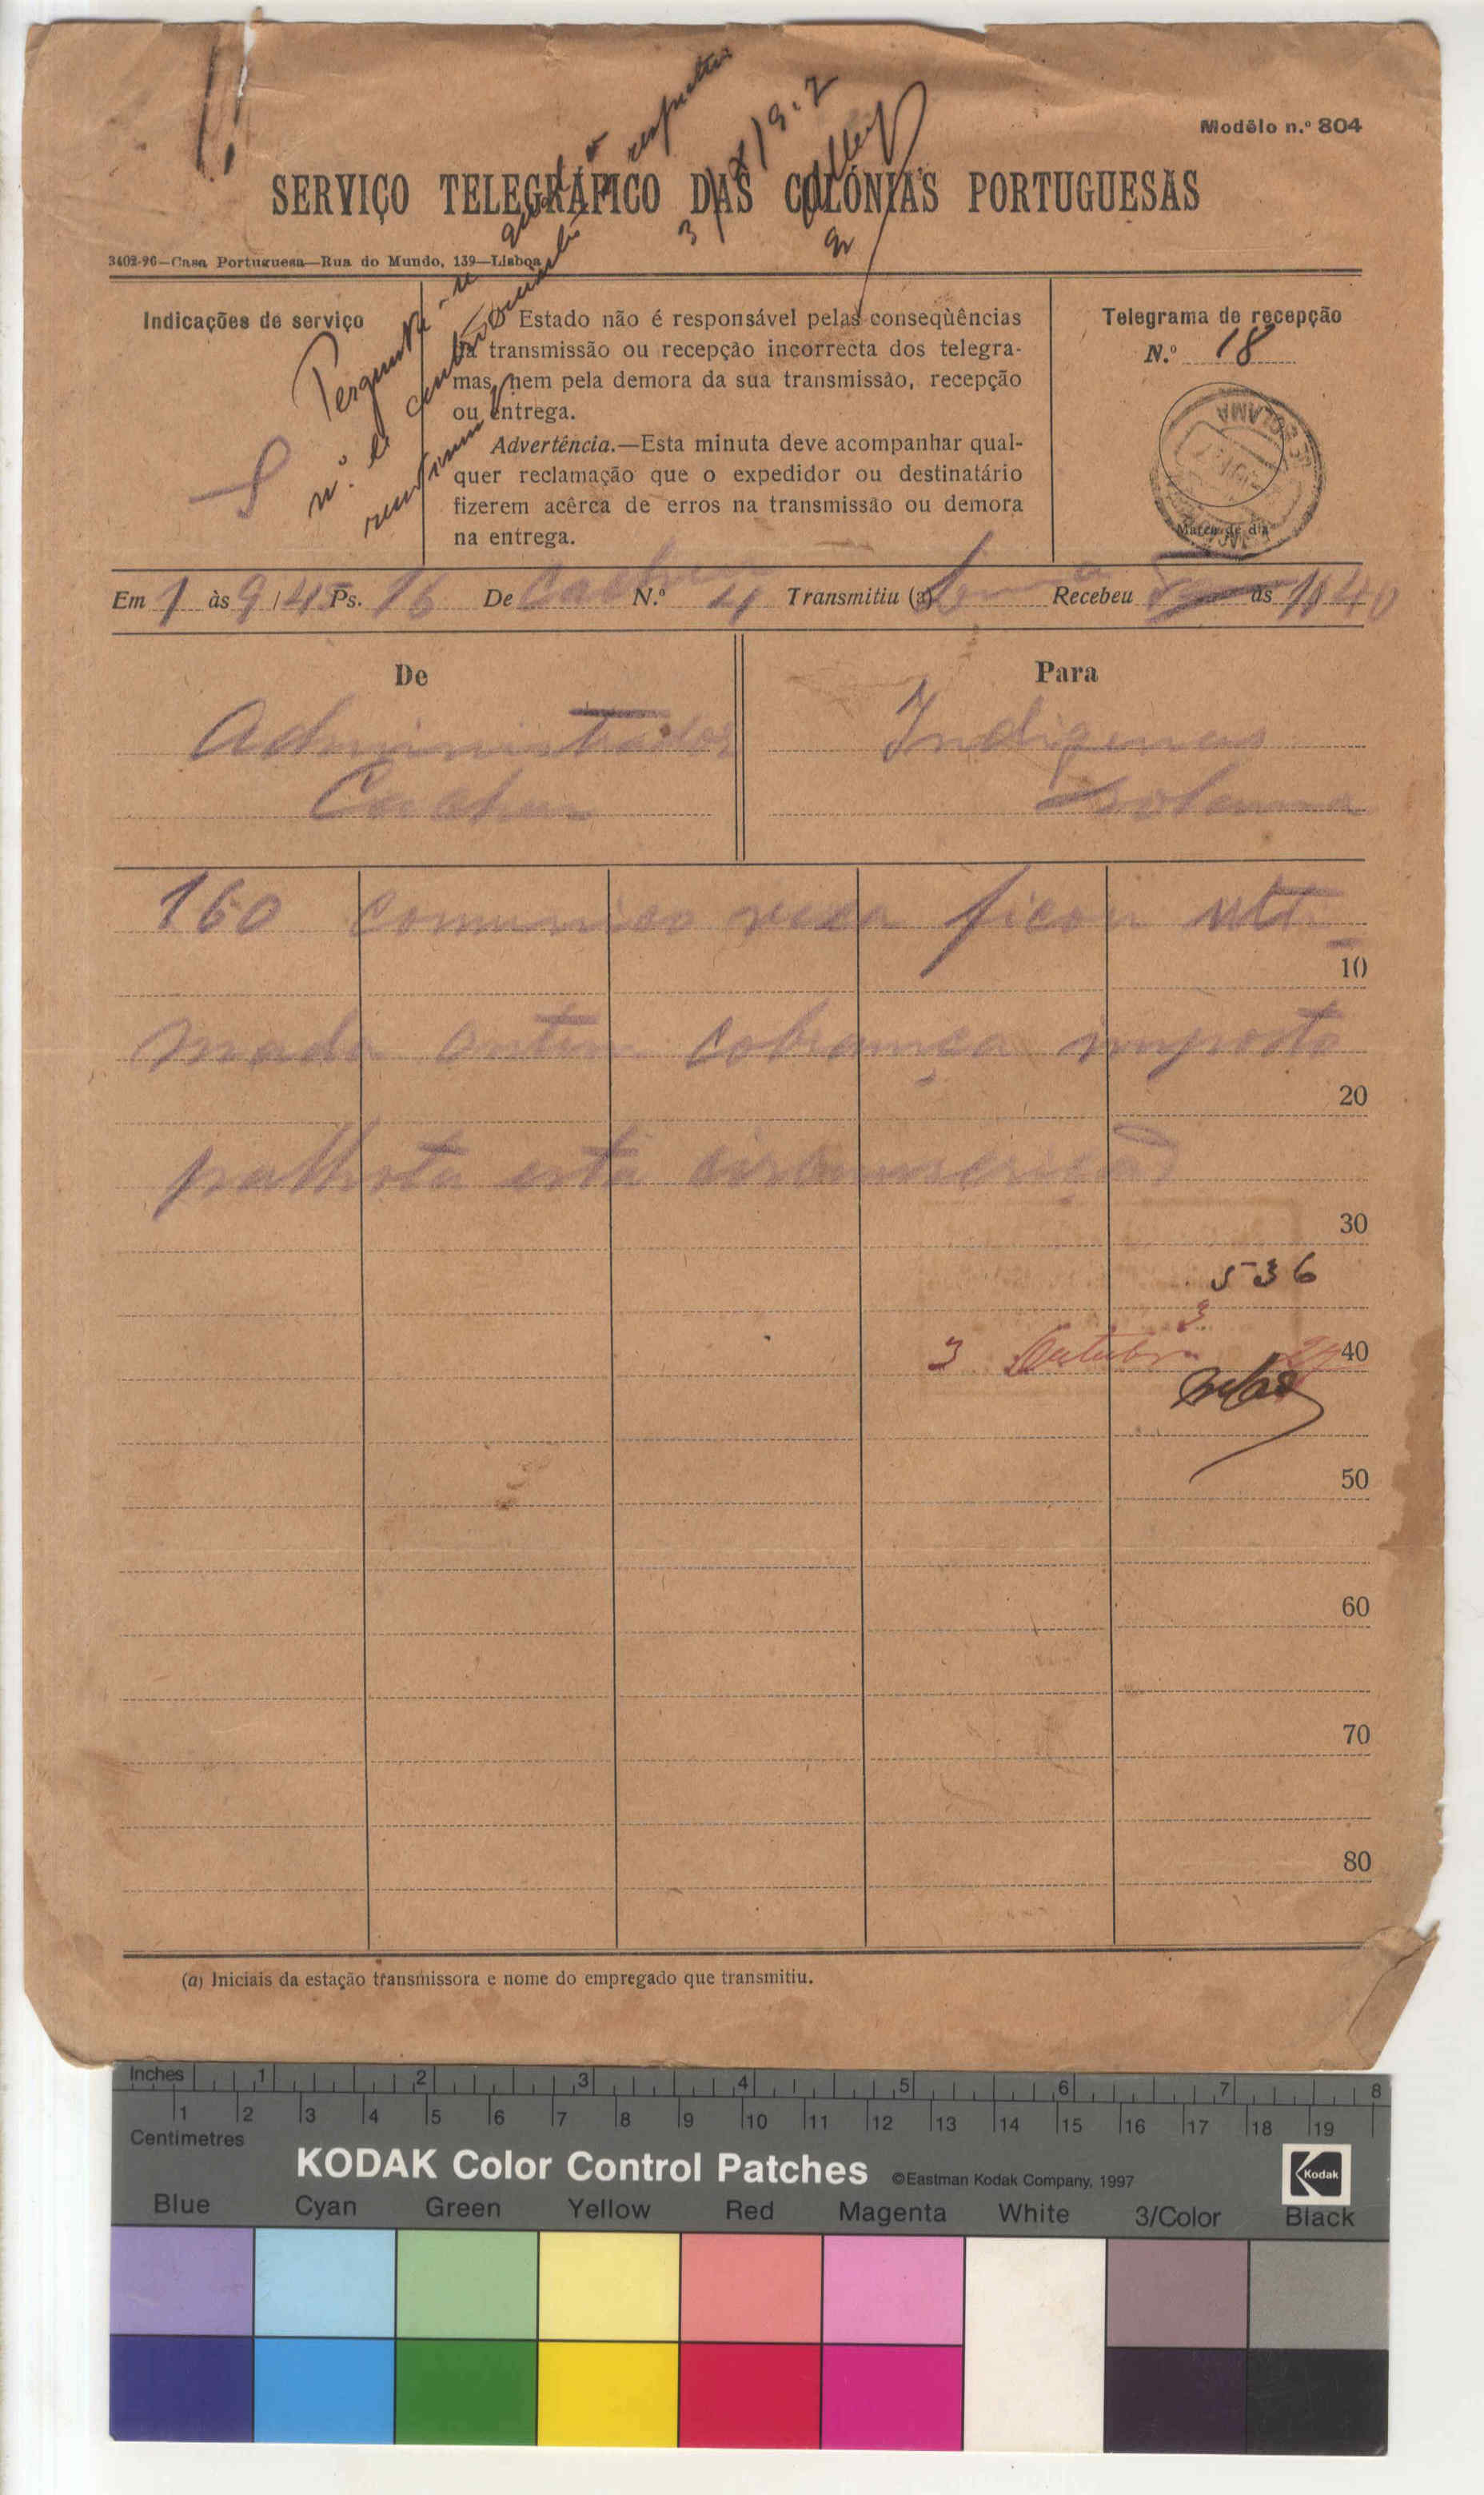 Modêlo n.º 804
SERVIÇO TELEGRÁFICO DAS COLÓNIAS PORTUGUESAS
3402-96—Casa Portuguesa—Rua do Mundo, 139—Lisboa
Indicações de serviço
O Estado não é responsável pelas conseqùências
da transmissão ou recepção incorrecta dos telegra-
mas, nem pela demora da sua transmissão, recepção
ou entrega.
Advertência.—Esta minuta deve acompanhar qual-
quer reclamação que o expedidor ou destinatário
fizerem acêrca de erros na transmissão ou demora
na entrega.
Telegrama de recepção
N.º 18
BOLAMA
Marca de dia
Em 1 às 9/45 Ps. 16 De Cacheu N.º 4 Transmitiu (a) Recebeu às 11 40
De
Administrador
Cacheu
Para
Indigenas
Bolama
160 comunico vexa ficou ulti-
mada ontem cobrança imposto
palhota esta circunscrição
10
20
30
536
3 Outubro
40
50
60
70
80
(a) Iniciais da estação transmissora e nome do empregado que transmitiu.
Inches 1 2 3 4 5 6 7 8
1 2 3 4 5 6 7 8 9 10 11 12 13 14 15 16 17 18 19
Centimetres
KODAK Color Control Patches ©Eastman Kodak Company, 1997
Kodak
Blue Cyan Green Yellow Red Magenta White 3/Color Black